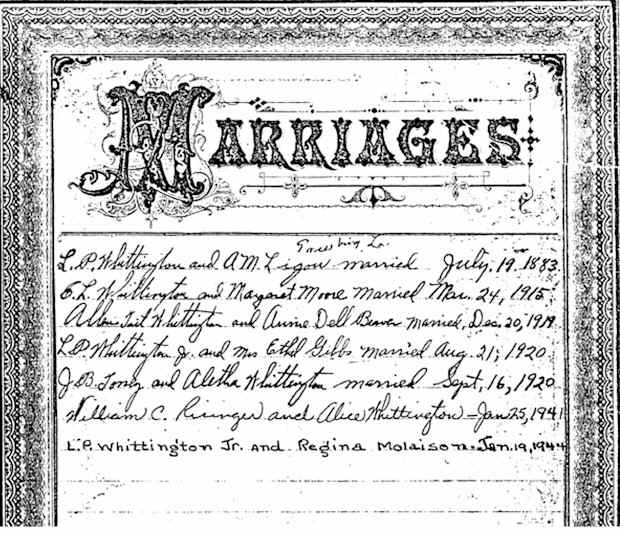 MARRIAGES
La.
L. P. Whittington and A M Ligon married July, 19, 1883.
E. L. Whittington and Margaret Moore Married Mar. 24, 1915
Whittington and Annie Dell Beaver married, Dec. 20, 1919
L P Whittington Jr. and Mrs Ethel Gibbs married Aug. 21, 1920.
J B and Aletha Whittington married Sept, 16, 1920
William C. Risinger and Alice Whittington - Jan 25, 1941
L.P. Whittington Jr. And Regina Molaison - Jan. 19, 1944